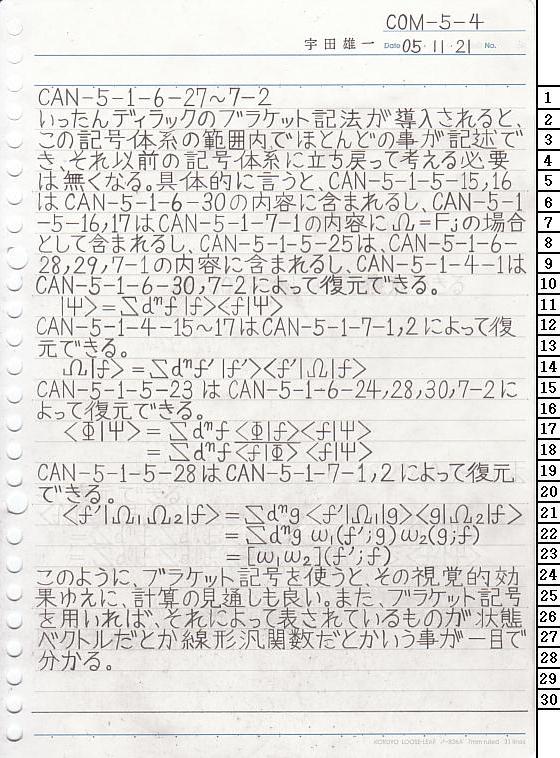 COM-5-4
宇田雄一 Date 05・11・21 No.
CAN-5-1-6-27~7-2
いったんディラックのブラケット記法が導入されると、
この記号体系の範囲内でほとんどの事が記述で
き、それ以前の記号体系に立ち戻って考える必要
は無くなる。具体的に言うと、CAN-5-1-5-15,16
はCAN-5-1-6-30の内容に含まれるし、CAN-5-1
-5-16,17はCAN-5-1-7-1の内容にΩ=Fjの場合
として含まれるし、CAN-5-1-5-25は、CAN-5-1-6-
28,29,7-1の内容に含まれるし、CAN-5-1-4-1は
CAN-5-1-6-30,7-2によって復元できる。
|Ψ>=∑dⁿf |f><f|Ψ>
CAN-5-1-4-15~17はCAN-5-1-7-1,2によって復
元できる。
Ω|f>=∑dⁿf' |f'><f'|Ω|f>
CAN-5-1-5-23 はCAN-5-1-6-24,28,30,7-2に
よって復元できる。
<Φ|Ψ>=∑dⁿf <Φ|f><f|Ψ>
=∑dⁿf <f|Φ> <f|Ψ>
CAN-5-1-5-28はCAN-5-1-7-1,2によって復元
できる。
<f'|Ω₁Ω₂|f>=∑dⁿg<f'|Ω₁|g><g|Ω₂|f>
=∑dⁿg ω₁(f';g)ω₂(g;f)
=[ω₁ω₂](f';f)
このように、ブラケット記号を使うと、その視覚的効
果ゆえに、計算の見通しも良い。また、ブラケット記号
を用いれば、それによって表されているものが状態
ベクトルだとか線形汎関数だとかいう事が一目で
分かる。
KOKUYO LOOSE-LEAF ノ-836A 7mm ruled 31 lines
1
2
3
4
5
6
7
8
9
10
11
12
13
14
15
16
17
18
19
20
21
22
23
24
25
26
27
28
29
30